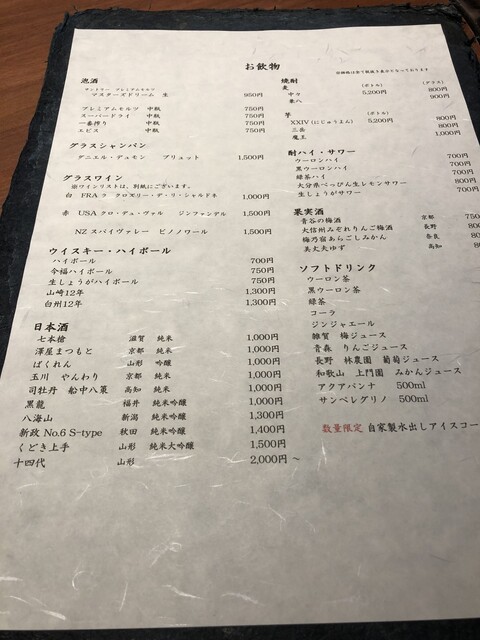 お飲物
泡酒
サントリー プレミアムモルツ
マスターズドリーム 生 950円
プレミアムモルツ 中瓶 750円
スーパードライ 中瓶 750円
一番搾り 中瓶 750円
エビス 中瓶 750円
グラスシャンパン
ダニエル・デュモン ブリュット 1,500円
グラスワイン
※ワインリストは、別紙にございます。
白 FRA ラ クロズリー・デ・リ・シャルドネ 1,000円
赤 USA クロ・デュ・ヴァル ジンファンデル 1,500円
NZ スパイヴァレー ピノノワール 1,500円
ウイスキー・ハイボール
ハイボール 700円
今福ハイボール 750円
生しょうがハイボール 750円
山崎12年 1,300円
白州12年 1,300円
日本酒
七本槍 滋賀 純米 1,000円
澤屋まつもと 京都 純米 1,000円
ばくれん 山形 吟醸 1,000円
玉川 やんわり 京都 純米 1,000円
司牡丹 船中八策 高知 純米 1,000円
黒龍 福井 純米吟醸 1,000円
八海山 新潟 純米吟醸 1,300円
新政 No.6 S-type 秋田 純米吟醸 1,400円
くどき上手 山形 純米大吟醸 1,500円
十四代 山形 2,000円 ~
焼酎
麦 (ボトル) (グラス)
中々 5,200円 800円
兼八 900円
芋 (ボトル)
XXIV (にじゅうよん) 5,200円 800円
三岳 800円
魔王 1,000円
酎ハイ・サワー
ウーロンハイ 700円
黒ウーロンハイ 700円
緑茶ハイ 700円
大分県べっぴん生レモンサワー 800円
生しょうがサワー 700円
果実酒
青谷の梅酒 京都 750
大信州みぞれりんご梅酒 長野 800
梅乃宿あらごしみかん 奈良
美丈夫ゆず 高知
ソフトドリンク
ウーロン茶
黒ウーロン茶
緑茶
コーラ
ジンジャエール
雑賀 梅ジュース
青森 りんごジュース
長野 林農園 葡萄ジュース
和歌山 上門園 みかんジュース
アクアパンナ 500ml
サンペレグリノ 500ml
数量限定 自家製水出しアイスコー